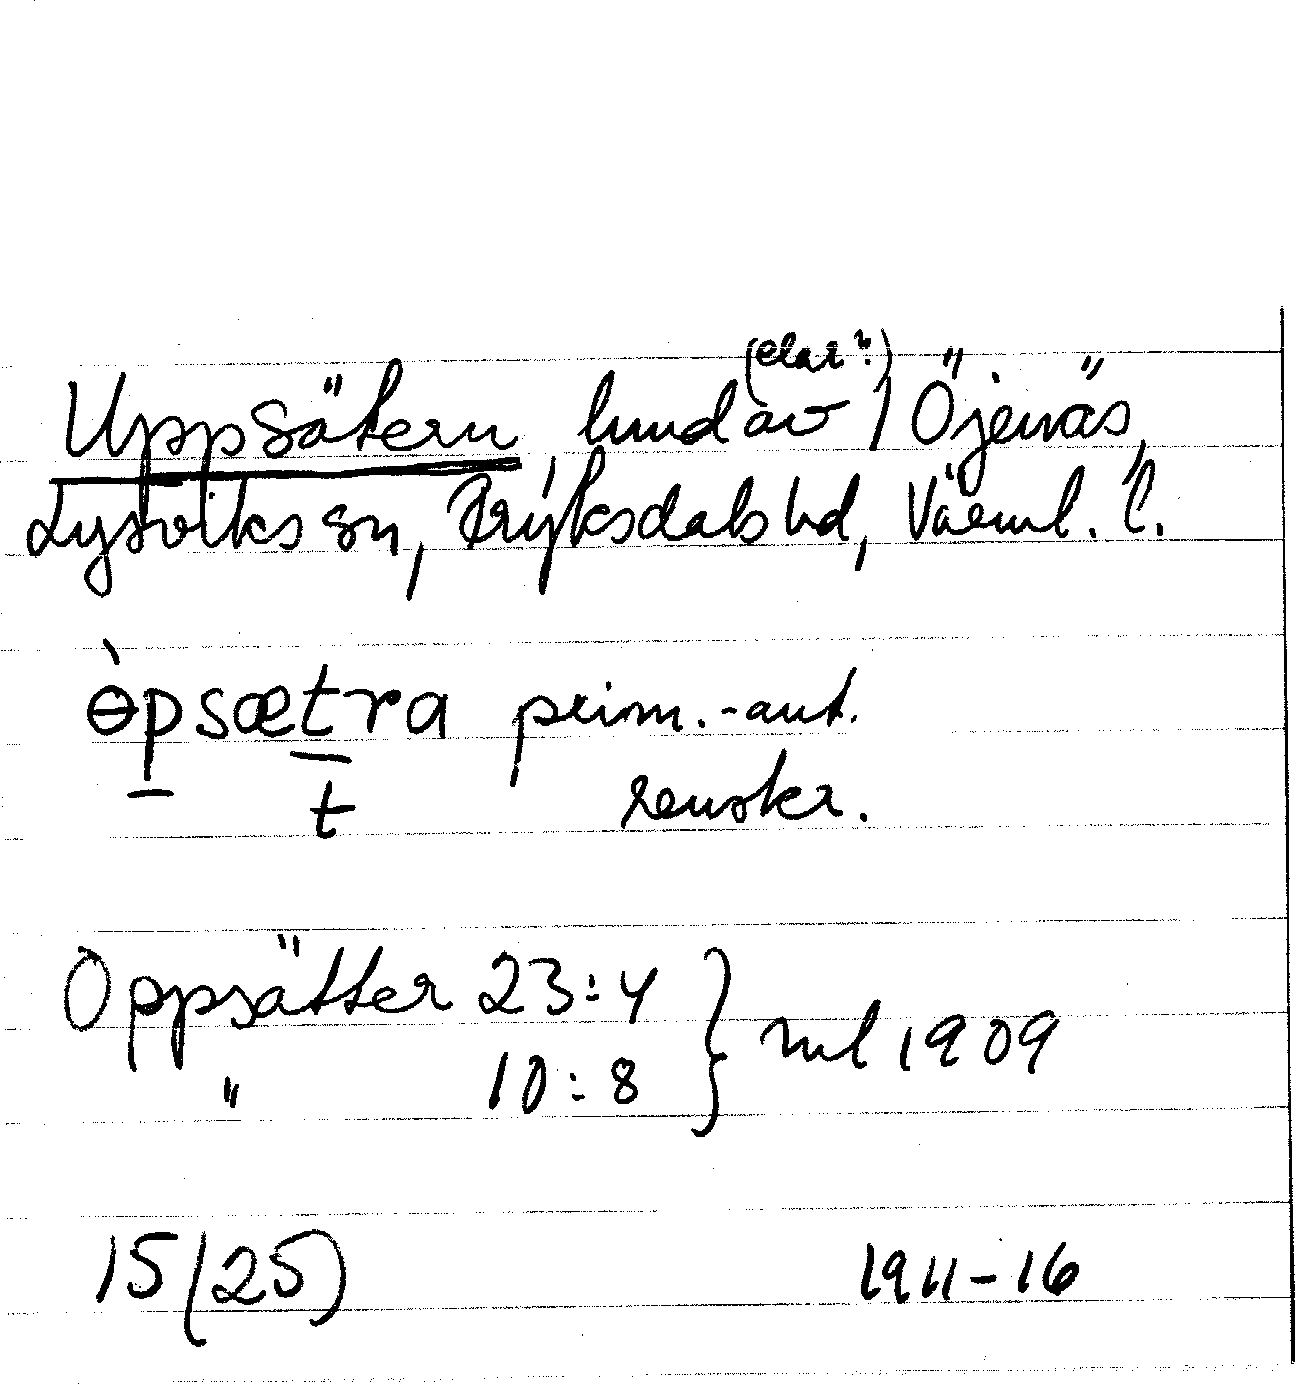 (elar ?)
Uppsätern, hmd av / Öjenäs,
Lysviks sn, Fryksdals hd, Värml. l.
ɵ̀psætra prim.-aut.
t renskr.
Oppsätter 23:4 } ml 1909
" 10:8
15 (25) 1911-16